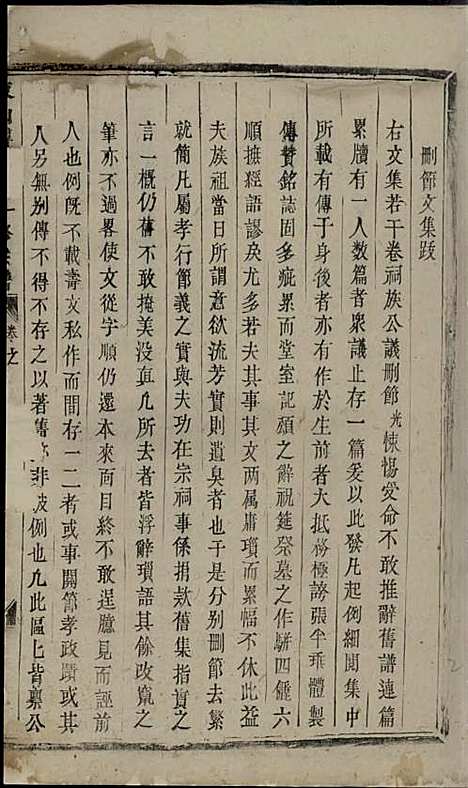 刪節文集跋
右文集若干卷祠族公議刪節光悚惕受命不敢推辭舊譜連篇
累牘有一人數篇者衆議止存一篇爰以此發凡起例細閱集中
所載有傳于身後者亦有作於生前者大抵務極諛張半乖體製
傳贊銘誌固多疵累而堂室記頌之辭祝筵癸墓之作駢四儷六
順撫經語謬戾尤多若夫其事其文两属庸瑣而累幅不休此益
夫族祖當日所謂意欲流芳實則遺臭者也于是分别刪節去繁
就簡凡屬孝行節義之實與夫功在宗祠事係捐欵舊集指實之
言一概仍舊不敢掩美没真凡所去者皆浮辭瑣語其餘改竄之
筆亦不過畧使文從字順仍還本來面目終不敢逞臆見而誣前
人也例旣不載壽文私作而間存一二者或事關節孝政蹟或其
人另無别傳不得不存之以著舊 非破例也凡此區區上皆稟公
卷之